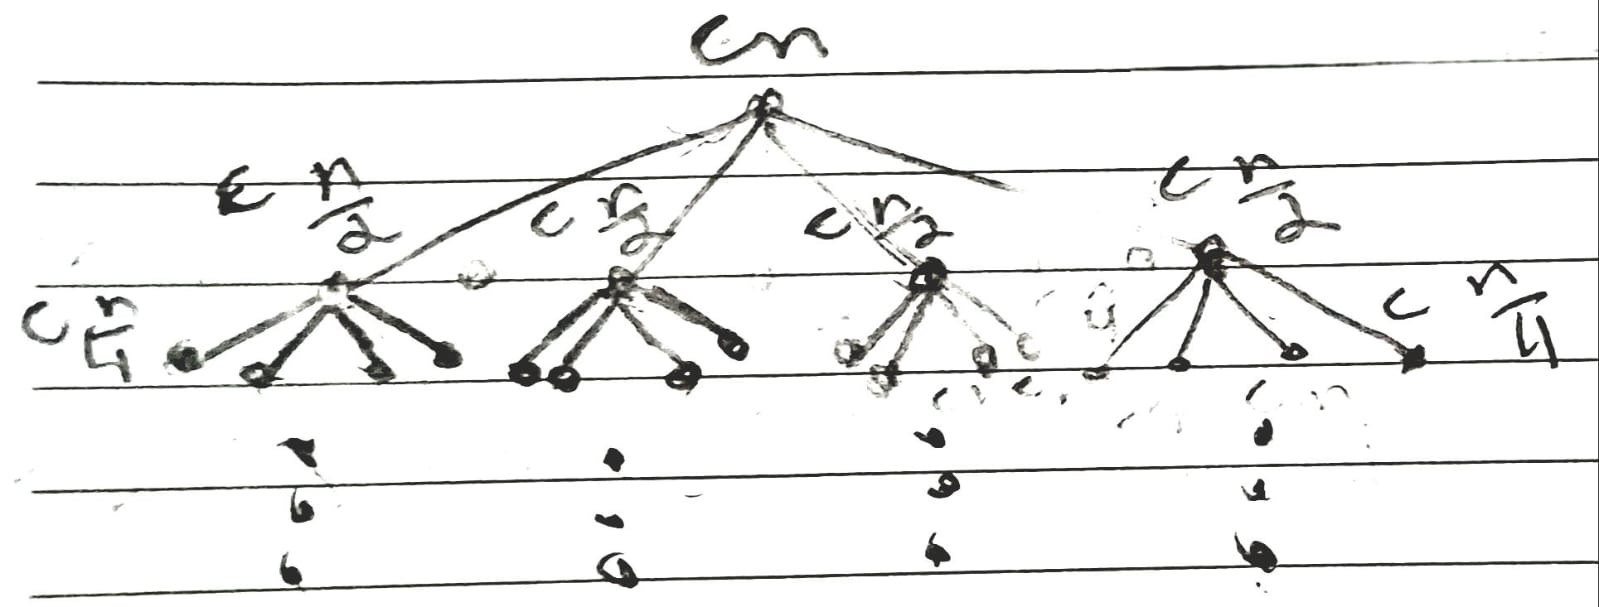 cn
c n/2 c n/2 c n/2 c n/2
c n/4 c n/4